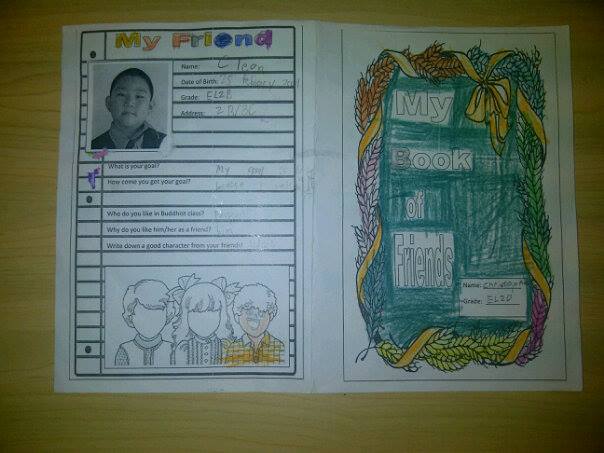 My Friend
Name:
Date of Birth: 25
Grade: EL2B
Address: 2B/3C
What is your goal? My goal
How come you get your goal?
Who do you like in Buddhist class?
Why do you like him/her as a friend?
Write down a good character from your friend!
My
Book
of
Friends
Name:
Grade: EL2D